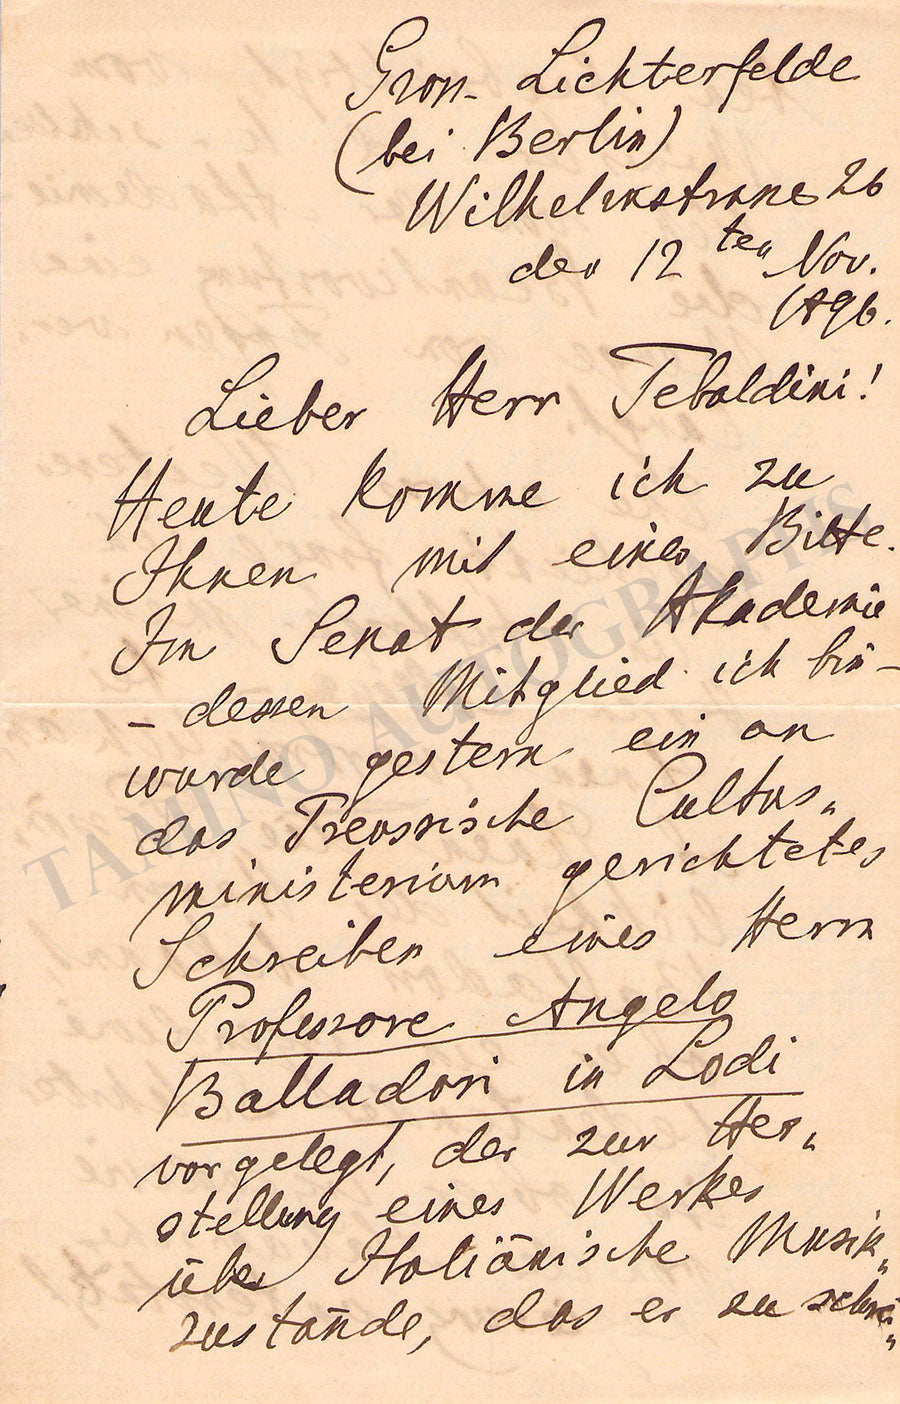 Gross-Lichterfelde
(bei Berlin)
Wilhelmstrasse 26
den 12ten Nov.
1896.
Lieber Herr Tebaldini!
Heute komme ich zu
Ihnen mit einer Bitte.
Im Senat der Akademie
– dessen Mitglied ich bin –
wurde gestern ein an
das Preussische Cultus„
ministerium gerichtetes
Schreiben eines Herrn
Professore Angelo
Balladori in Lodi
vorgelegt, der zur Her„
stellung eines Werkes
über Italiänische Musik„
zustände, das er zu schrei„
TAMINO AUTOGRAPHS